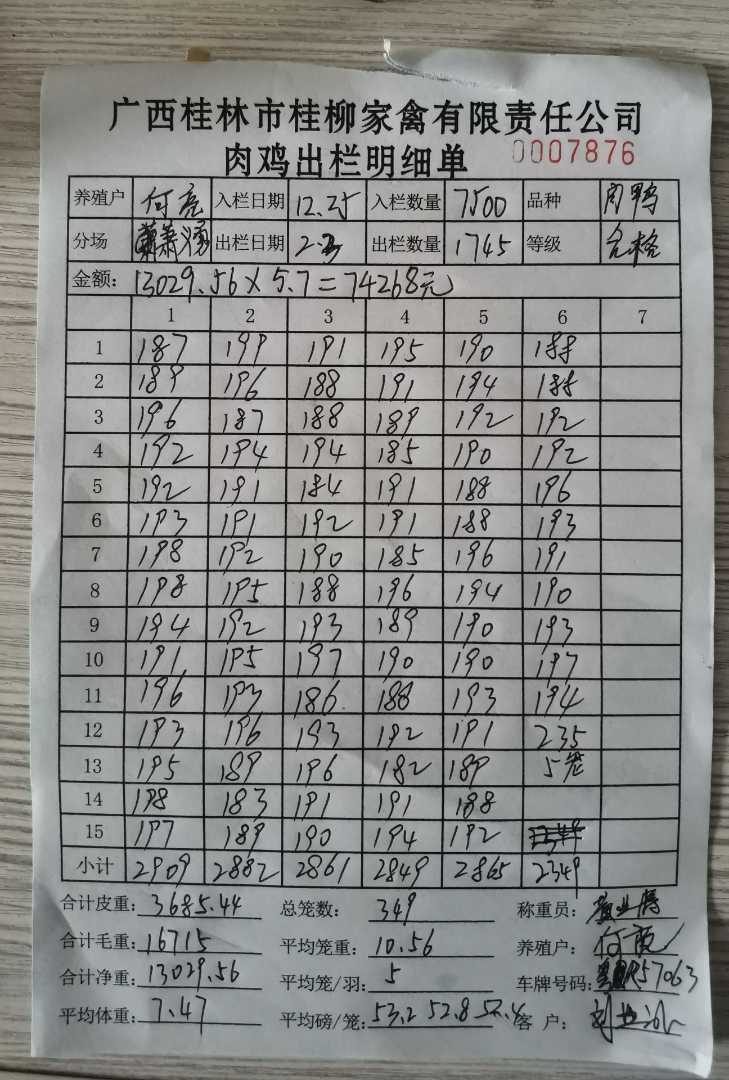 广西桂林市桂柳家禽有限责任公司
肉鸡出栏明细单 0007876
养殖户 何亮 入栏日期 12.25 入栏数量 7500 品种 肉鸭
分场 出栏日期 2.3 出栏数量 1745 等级 合格
金额: 13029.56×5.7=74268元
1 2 3 4 5 6 7
1 187 199 191 195 190 188
2 189 196 188 191 194 188
3 196 187 188 189 192 192
4 192 194 194 185 190 192
5 192 191 184 191 188 196
6 193 191 192 191 188 193
7 198 192 190 185 196 191
8 198 195 188 196 194 190
9 194 192 193 189 190 193
10 191 195 197 190 190 197
11 196 193 186 188 193 194
12 193 196 193 192 191 235
13 195 189 196 182 189 5笼
14 198 183 191 191 188
15 197 189 190 194 192
小计 2909 2882 2861 2849 2865 2349
合计皮重: 3685.44 总笼数: 349 称重员:
合计毛重: 16715 平均笼重: 10.56 养殖户: 何
合计净重: 13029.56 平均笼/羽: 5 车牌号码: 57063
平均体重: 7.47 平均磅/笼: 53.2 52.8 52.4 客 户: 刘